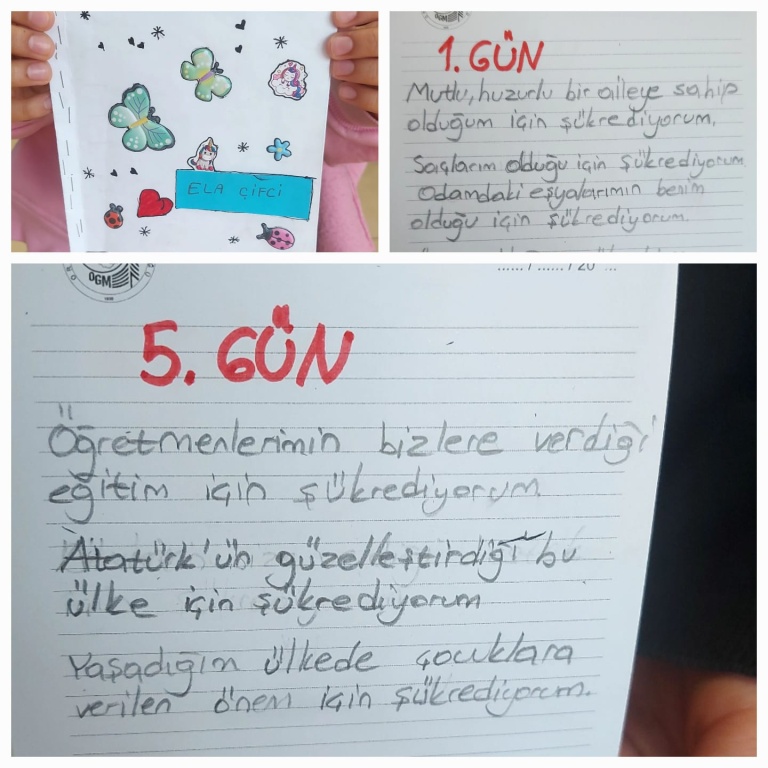 ELA ÇİFCİ
1. GÜN
Mutlu, huzurlu bir aileye sahip
olduğum için şükrediyorum.
Saçlarım olduğu için şükrediyorum
Odamdaki eşyalarımın benim
olduğu için şükrediyorum.
OGM
...... / ...... / 20 ...
5. GÜN
Öğretmenlerimin bizlere verdiği
eğitim için şükrediyorum
Atatürk'ün güzelleştirdiği bu
ülke için şükrediyorum
Yaşadığım ülkede çocuklara
verilen önem için şükrediyorum.